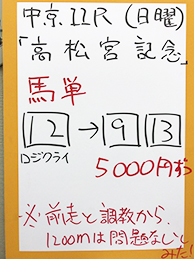 中京11R(日曜)
「高松宮記念」
馬単
12→9 13
ロジクライ
5000円ずつ
※前走と調教から、
1200mは問題ないと
みた!